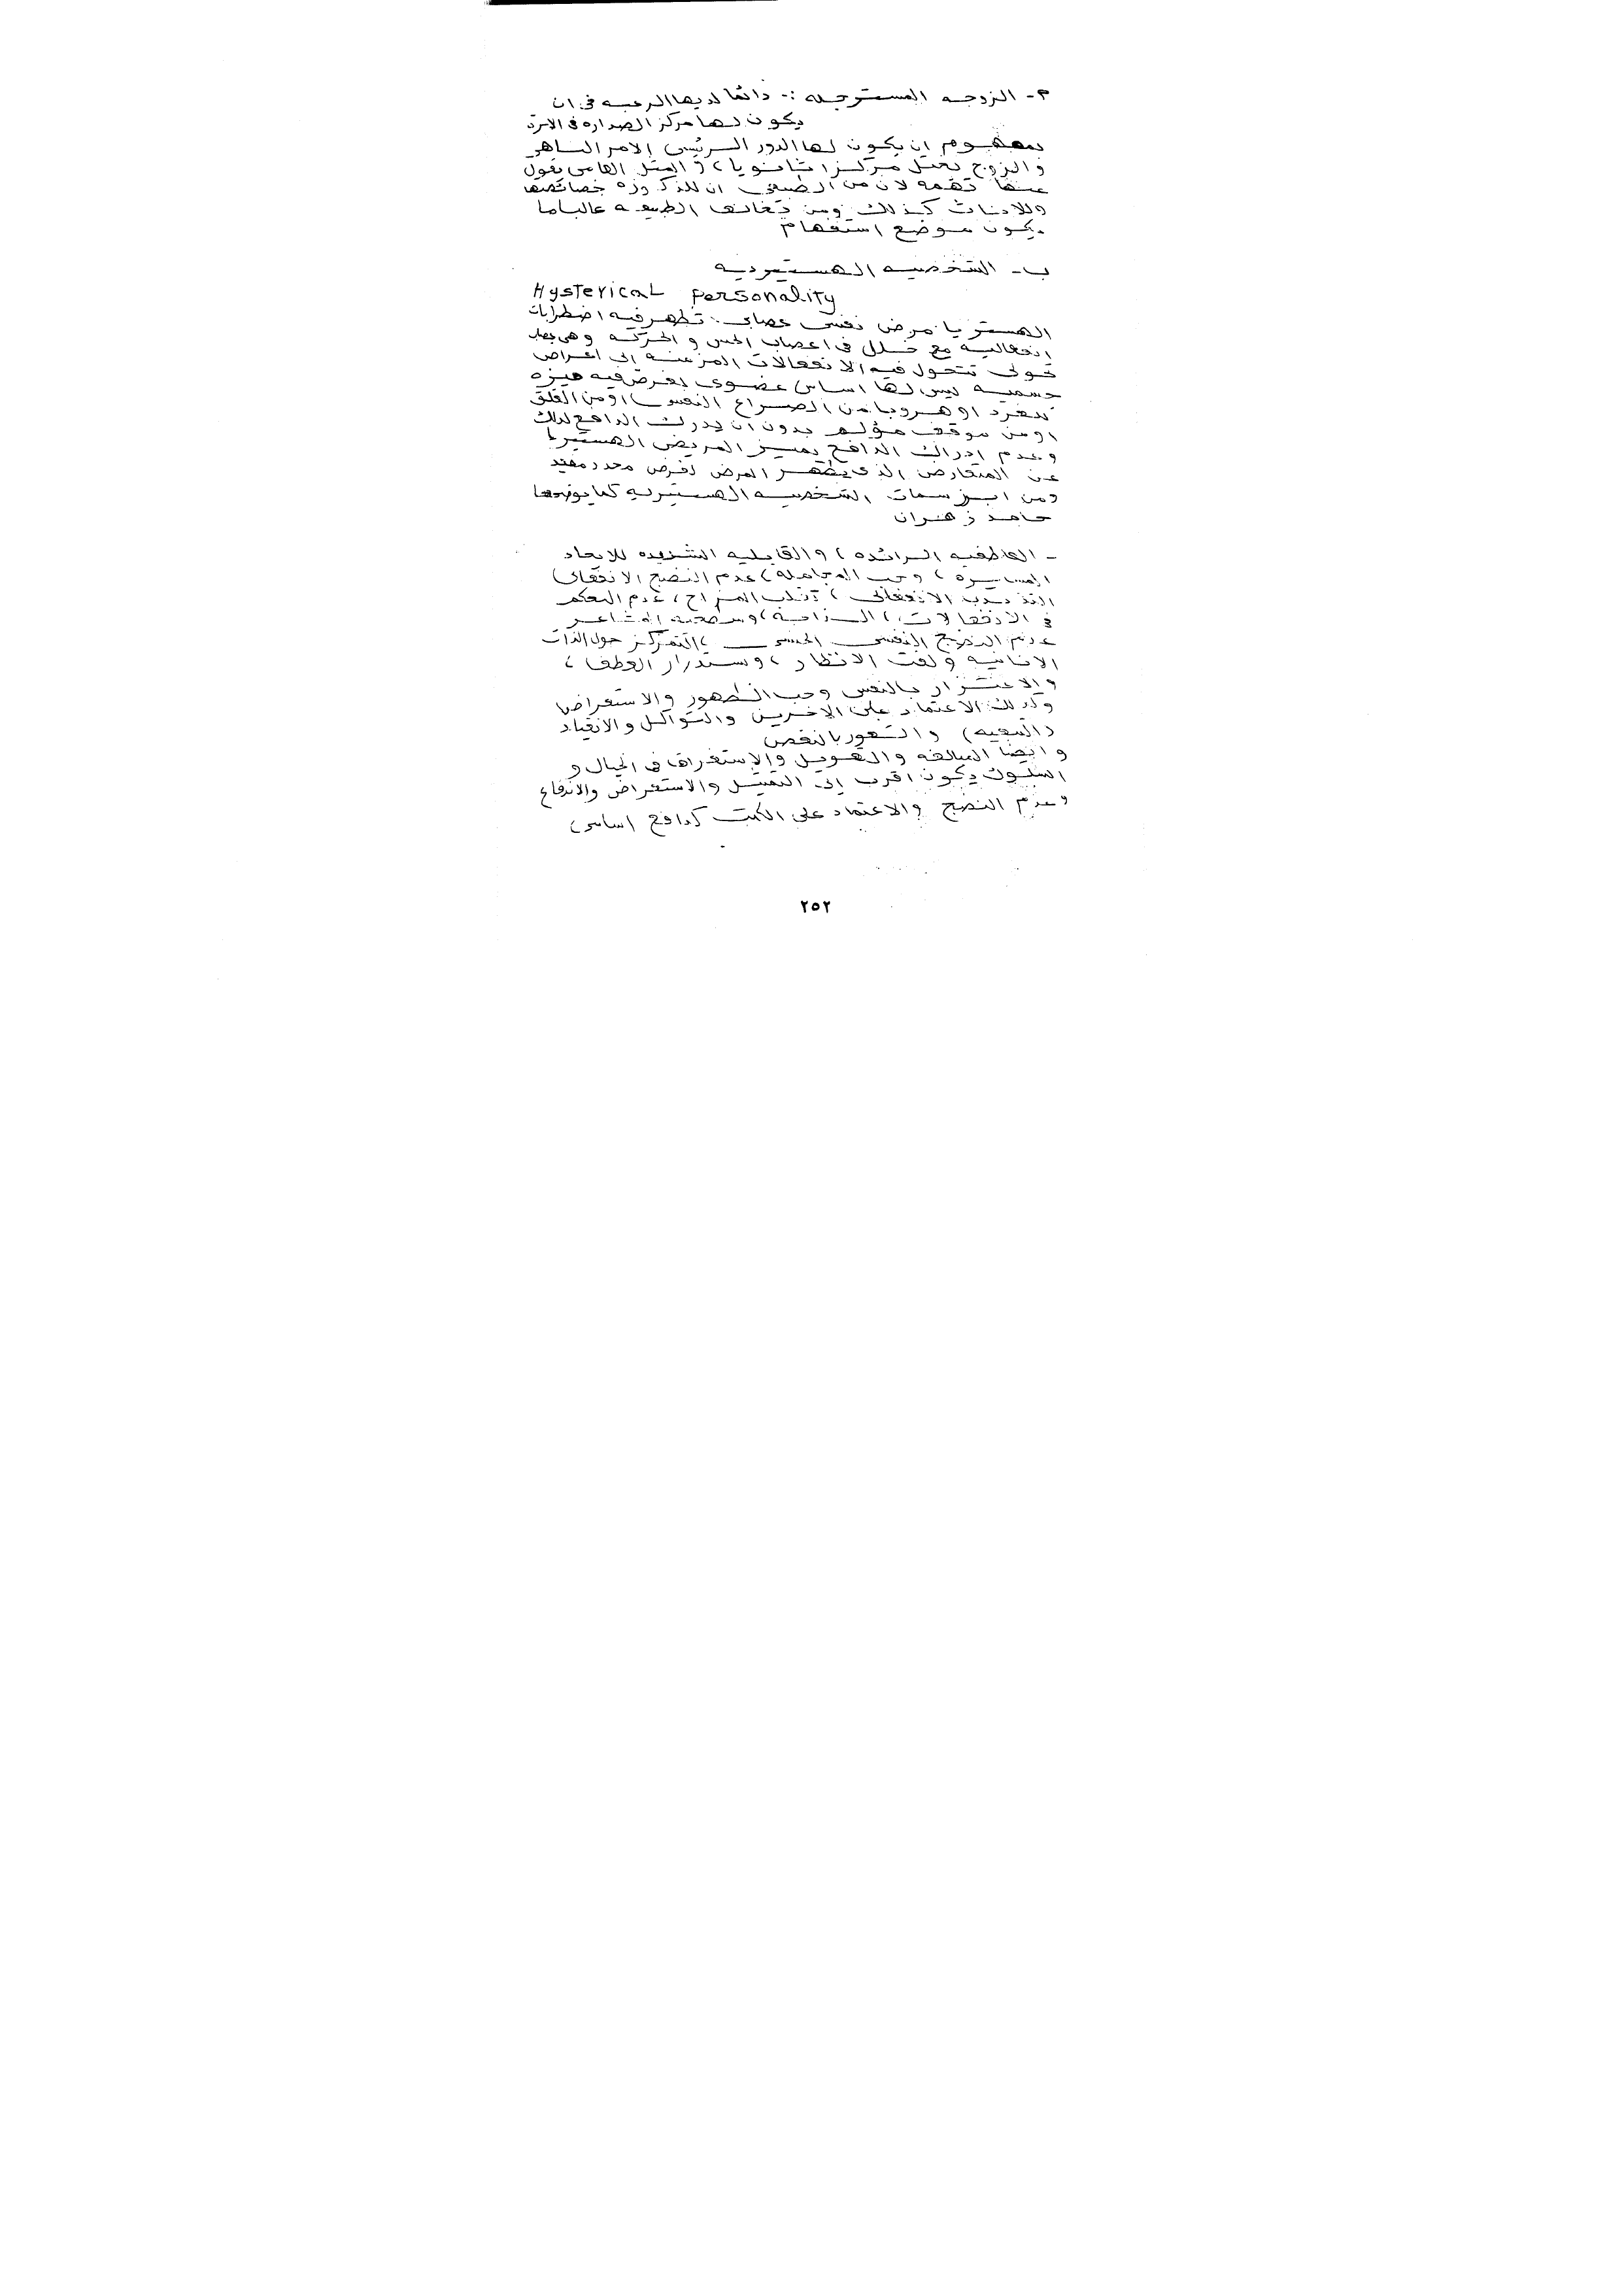 ٣- الزوجه المسترجله :- دائما لديها الرغبه فى ان
يكون لها مركز الصداره فى الاسرة
بمفهوم ان يكون لها الدور الرئيسى الامر الناهى
والزوج يحتل مركزا ثانويا، ( المثل العامى يقول
عنها لان من الطبيعى ان للذكوره خصائصها
وللاناث كذلك ومن تخالف الطبيعه غالبا ما
يكون موضع استفهام
ب- الشخصيه الهستيريه
Hysterical personality
الهستريا مرض نفسى عصابى: تظهر فيه اضطرابات
انفعاليه مع خلل فى اعصاب الحس و الحركه وهى عصاب
تحولى تتحول فيه الانفعالات المزمنه الى اعراض
جسميه ليس لها اساس عضوى لغرض فيه ميزه
للفرد او هروبا من الصراع النفسى او من القلق
او من موقف مؤلم بدون ان يدرك الدافع لذلك
وعدم ادراك الدافع يميز المريض الهستيريا
عن المتمارض الذى يظهر المرض لغرض محدد مفيد
ومن ابرز سمات الشخصيه الهستيريه كما يوضحها
حامد زهران
- العاطفيه الزائده، والقابليه الشديده للايحاء
المسايره، وحب المجامله، عدم النضج الانفعالى
التذبذب الانفعالى، تقلب المزاج، عدم التحكم
فى الانفعالات، السذاجة، وسطحية المشاعر
عدم النضج النفسى الجنسى، التمركز حول الذات
الانانيه ولفت الانظار، واستدرار العطف،
والاعتزاز بالنفس وحب الظهور والاستعراض
وكذلك الاعتماد على الاخرين والتواكل والانقياد
( التبعيه ) والشعور بالنقص
وايضا المبالغه والتهويل والاستغراق فى الخيال و
السلوك يكون اقرب إلى التمثيل والاستعراض والاندفاع
وعدم النضج والاعتماد على الكبت كدافع اساسى،
٢٥٢